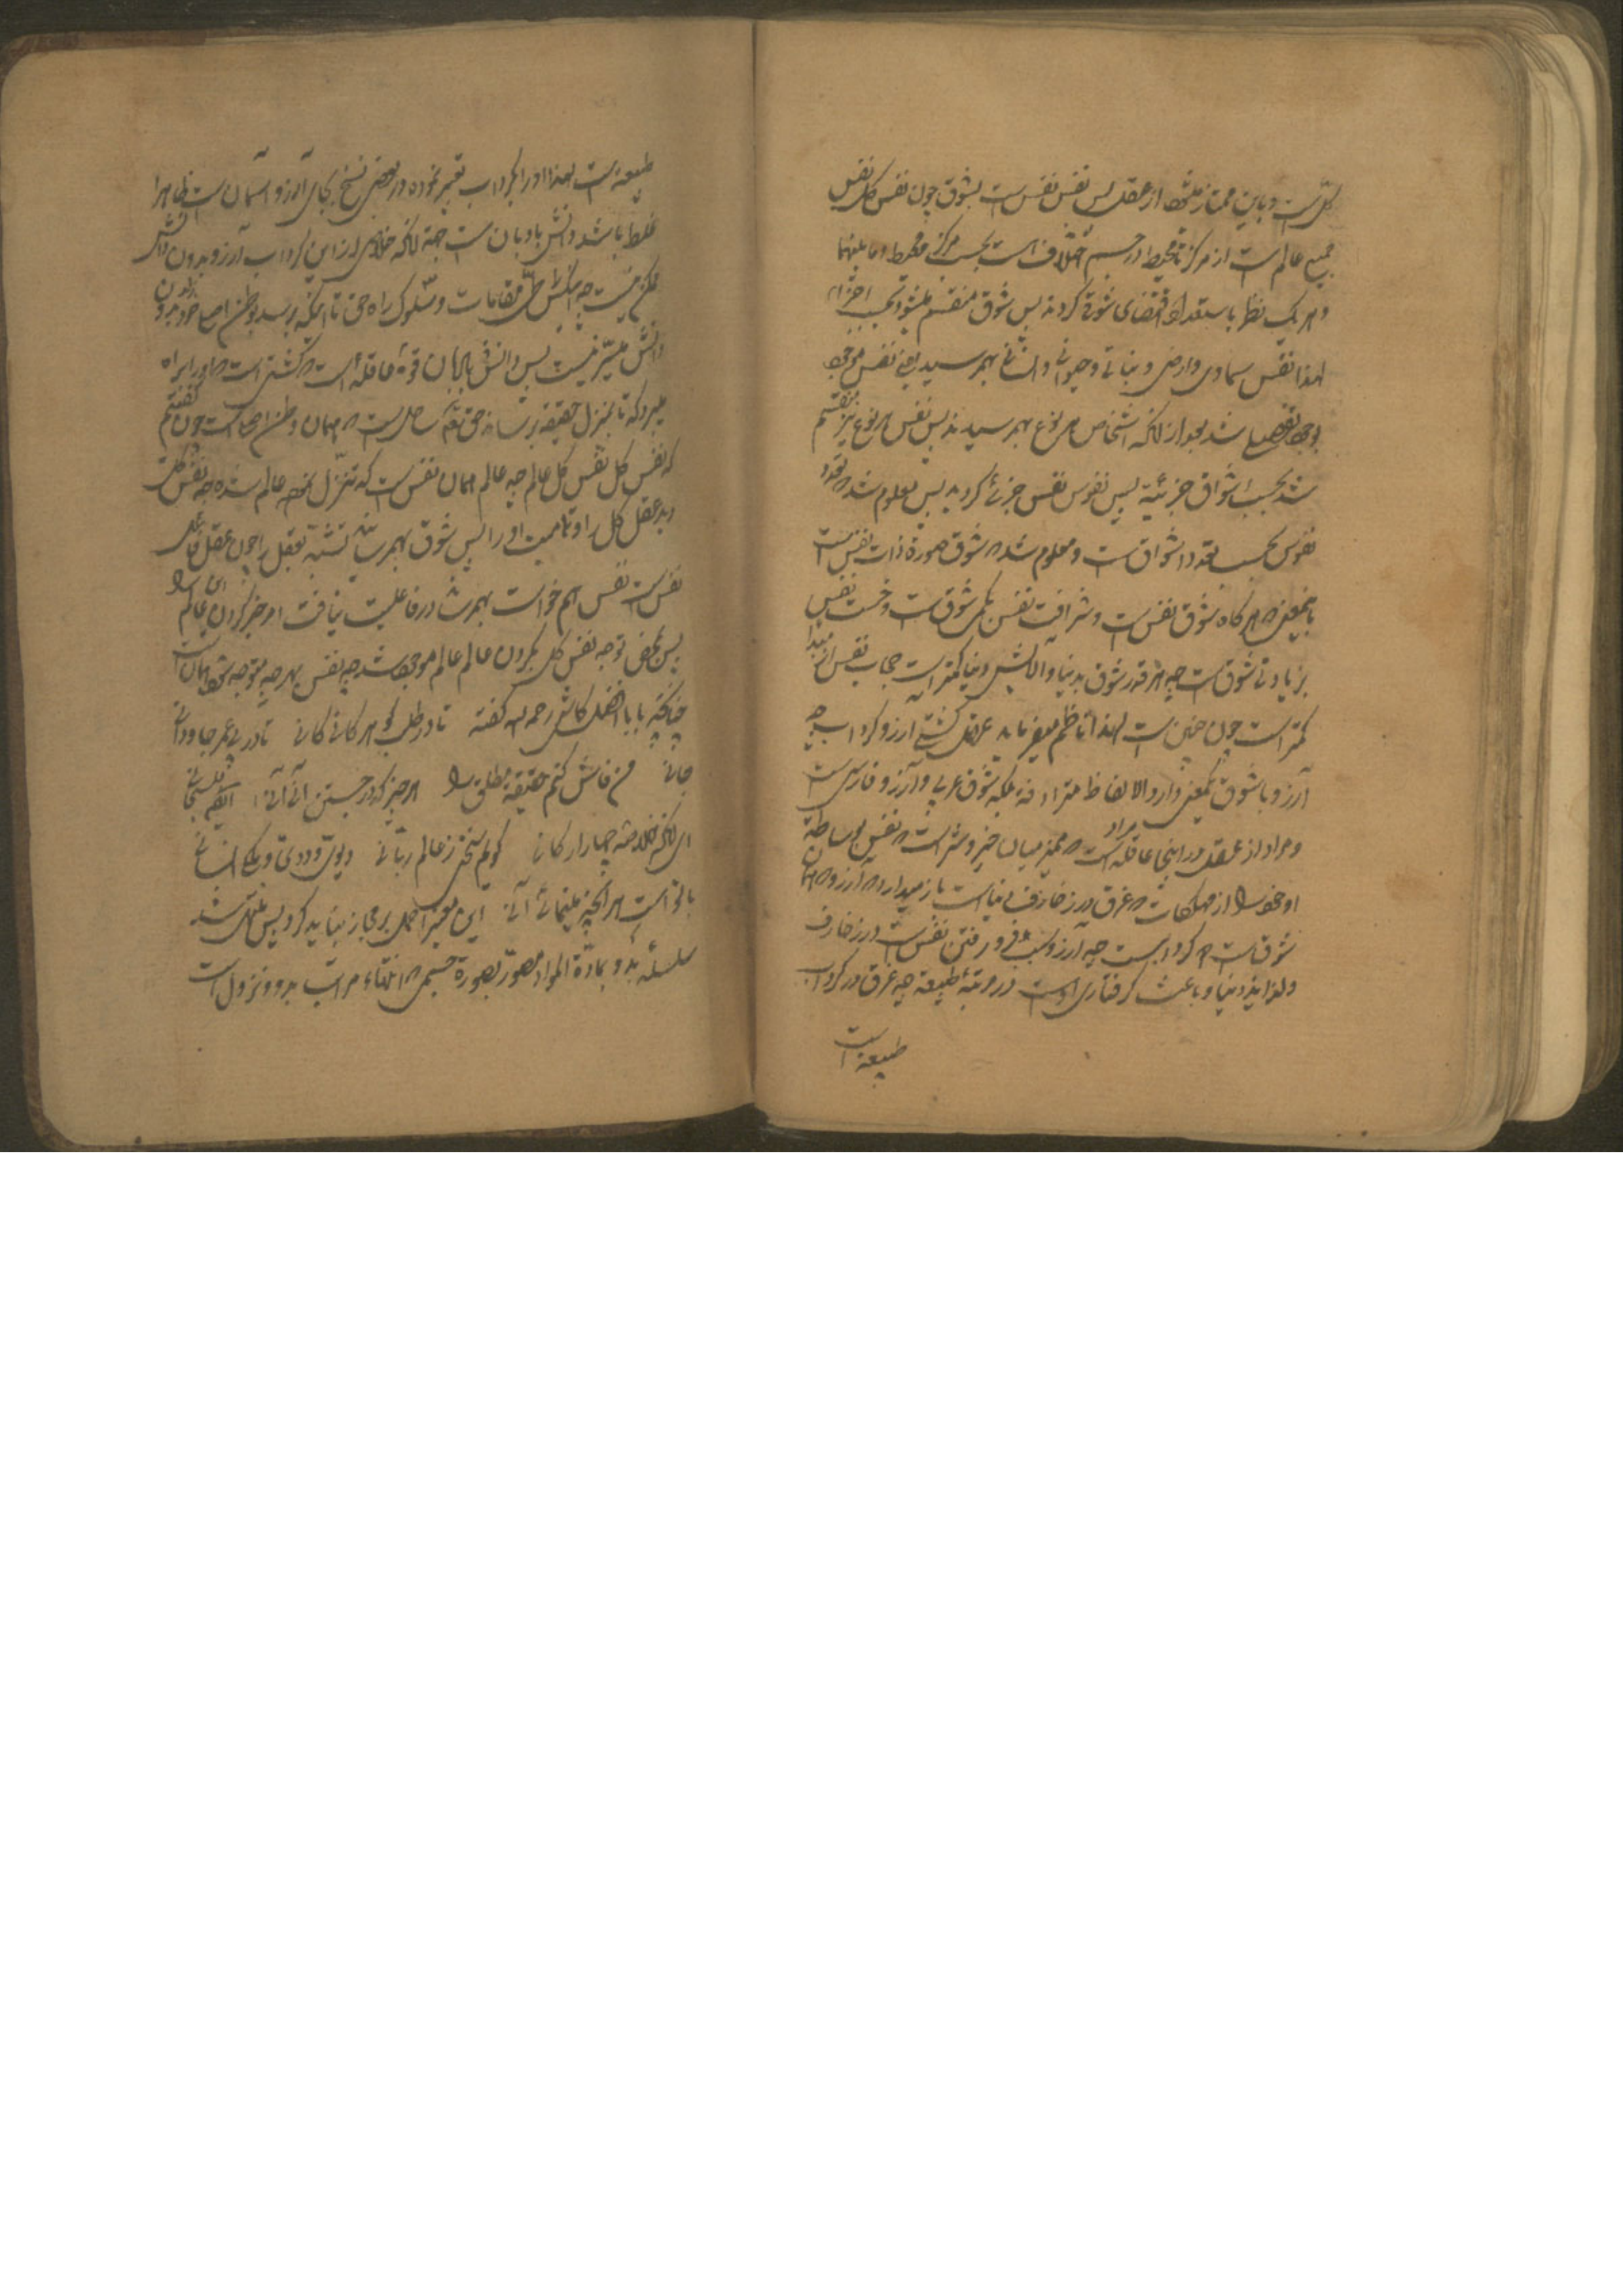 کل است و باین ممتاز میشود از عقل پس نفس نفس است بشوق چون نفس کل نفس
جمیع عالم است از مرکز تا محیط و در جسم اختلاف است بحسب مرکز و محیط و ما بینهما
و هر یک نظر باستعداد اقتضای شوقی کردند پس شوق منقسم میشود بحسب اجزاء
لهذا نفس سماوی و ارضی و نباتی و حیوانی و انسانی بهم رسید یعنی نفس موجود
بوجود تفصیلی شد بعد از آنکه اشخاص هر نوع بهم رسیدند پس نفس هر نوع نیز منقسم
شد بحسب اشواق جزئیه پس نفوس نفس جزئی گردید پس معلوم شد که تعدد
نفوس بحسب تعدد اشواق است و معلوم شد که شوق صورة ذات نفس است
باینمعنی که هر گاه شوق نفس است و شرافت نفس بکمی شوق است و خست نفس
بزیادتی شوق است چه هر قدر شوق بدنیا و آلایش دنیا کمتر است حجاب نفس از مبدأ
کمتر است چون چنین است لهذا ناظم میفرماید عقل کشتی آرزو گرداب چه
آرزو با شوق یکمعنی دارد و الالفاظ مترادفة بلکه شوق عربی و آرزو فارسی است
و مراد از عقل در اینجا عاقله است مراد که ممیز میان خیر و شر است که نفس بوساطة
او خود را از مهلکات که غرق در زخارف دنیا است باز میدارد که آرزو که همان
شوق است که گرداب است چه آرزو سبب فرو رفتن نفس است در زخارف
و لذایذ دنیا و باعث گرفتاری اوست در مرتبهٔ طبیعة چه غرق در گرداب
طبیعة است
طبیعة است لهذا او را بگرداب تعبیر نموده و در بعضی نسخ بجای آرزو آسمان است ظاهرا
غلط باشد دانش بادبان است جهة آنکه خلاصی از این گرداب آرزو بدون دانش
ممکن نیست چه طی مقامات و سلوک راه حق تا اینکه برسد بوطن اصلی خود بدون
دانش میسر نیست پس دانش بادبان قوة عاقله است که کشتی است که او را براه
میبرد که تا بمنزل حقیقة برساند حق تعالی ساحل است که همان وطن اصلی است چون گفتیم
که نفس کل نفس کل عالم چه عالم همان نفس است که تنزل نموده عالم شده چه نفس کل
دید عقل کل را و تمامیت او را پس شوق بهم رساند تشبه بعقل را چون عقل فاعل
نفس است نفس هم خواست بهم رساند در فاعلیت نیافت او جز کردن این عالم را
پس بمحض توجه نفس کل بکردن عالم عالم موجود شد چه نفس بهر چه متوجه شود همان است
چنانچه بابا افضل کاشی رحمه الله گفته تا در طلب گوهر کانی کانی تا در پی عمر جاودانی
جانی من فاش کنم حقیقة مطلق را هر چیز که در جستن آنی آنی ایضا
ای آنکه خلاصهٔ چهار ارکانی گویم سخنی ز عالم ربانی دیوی و ددی و ملکی انسانی
با تو است هر آنچه مینمائی آنی این تعبیر را حمل بر مجاز نباید کرد پس منتهی شد
سلسلهٔ بدو بمادة المواد مصور بصورة جسمی که انتهاء مراتب بدو و نزول است